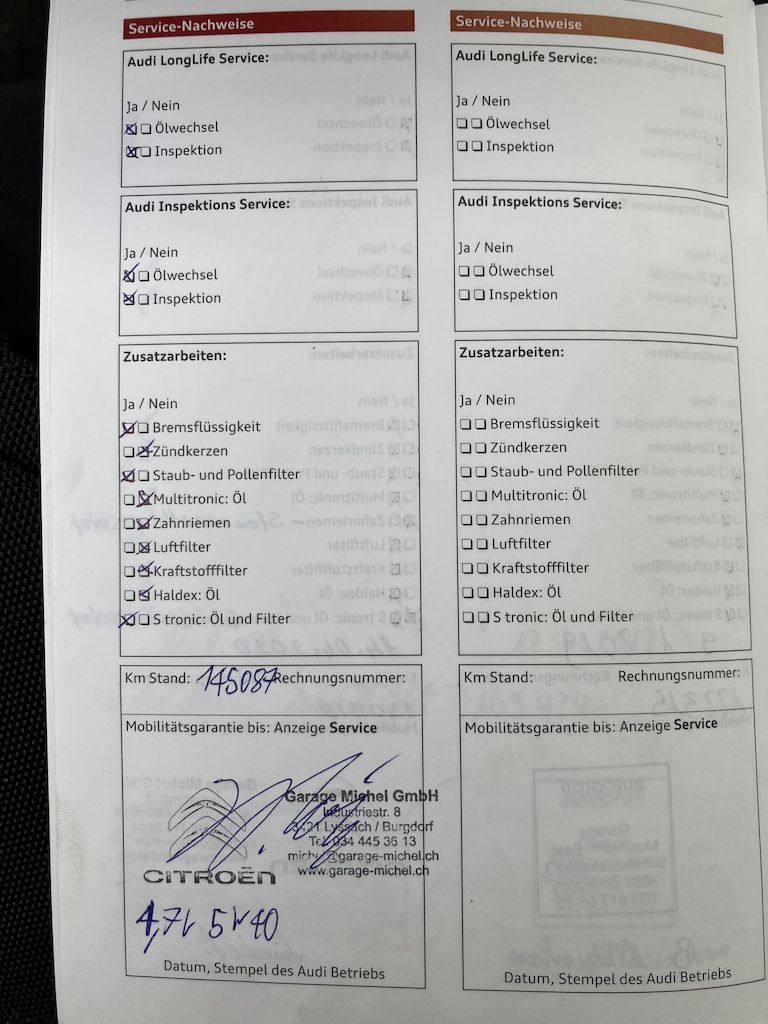 Service-Nachweise
Audi LongLife Service:
Ja / Nein
Ölwechsel
Inspektion
Audi Inspektions Service:
Ja / Nein
Ölwechsel
Inspektion
Zusatzarbeiten:
Ja / Nein
Bremsflüssigkeit
Zündkerzen
Staub- und Pollenfilter
Multitronic: Öl
Zahnriemen
Luftfilter
Kraftstofffilter
Haldex: Öl
S tronic: Öl und Filter
Km Stand: 145087 Rechnungsnummer:
Mobilitätsgarantie bis: Anzeige Service
Garage Michel GmbH
Industriestr. 8
3421 Lyssach / Burgdorf
Tel. 034 445 36 13
michel@garage-michel.ch
www.garage-michel.ch
CITROËN
4,7L 5W40
Datum, Stempel des Audi Betriebs
Service-Nachweise
Audi LongLife Service:
Ja / Nein
Ölwechsel
Inspektion
Audi Inspektions Service:
Ja / Nein
Ölwechsel
Inspektion
Zusatzarbeiten:
Ja / Nein
Bremsflüssigkeit
Zündkerzen
Staub- und Pollenfilter
Multitronic: Öl
Zahnriemen
Luftfilter
Kraftstofffilter
Haldex: Öl
S tronic: Öl und Filter
Km Stand: Rechnungsnummer:
Mobilitätsgarantie bis: Anzeige Service
Datum, Stempel des Audi Betriebs